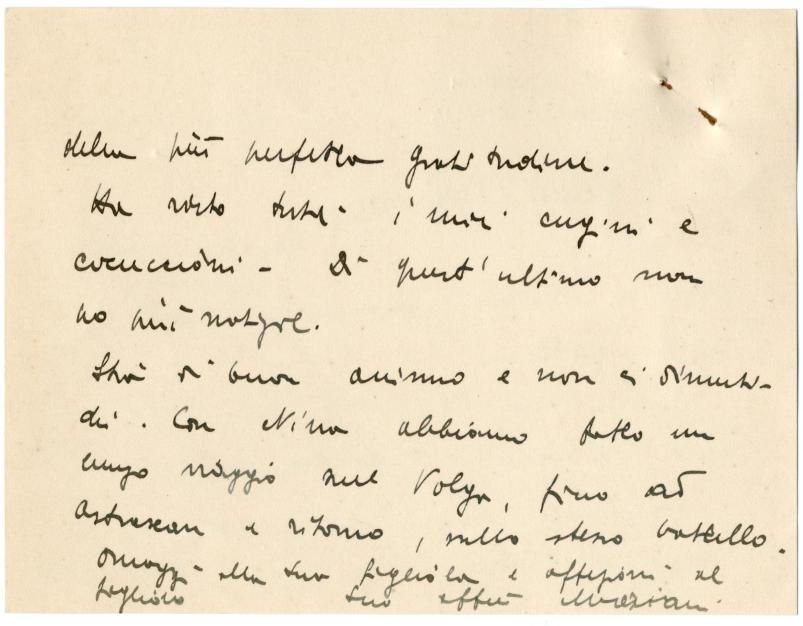 della più perfetta gratitudine.
Ha visto tutti i miei cugini e
. Di quest'ultimo non
ho più notizie.
Stia di buon animo e non ci dimenti-
chi. Con Nina abbiamo fatto un
lungo viaggio sul Volga, fino ad
Astrakan e ritorno, sullo stesso battello.
Omaggi alla sua figliola e affezioni al
figliolo suo aff